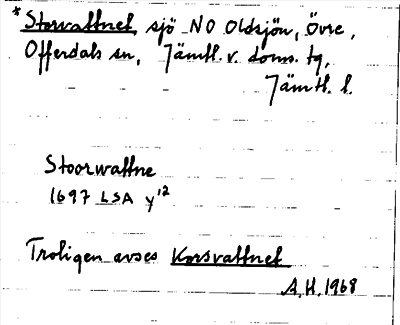 * Storvattnet, sjö NO Oldsjön, Övre,
Offerdals sn, Jämtl. v. doms. tg,
Jämtl. l.
Stoorwattne
1697 LSA y¹²
Troligen avses Korsvattnet
A.H. 1968